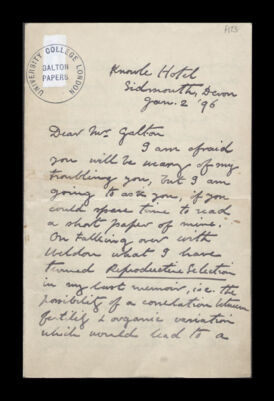 UNIVERSITY COLLEGE LONDON
GALTON
PAPERS
Knowle Hotel
Sidmouth, Devon
Jan. 2 '96
Dear Mr Galton
I am afraid
you will be weary of my
troubling you, but I am
going to ask you, if you
could spare time to read
a short paper of mine.
On talking over with
Weldon what I have
termed Reproductive Selection
in my last memoir, i.e. the
possibility of a correlation between
fertility & organic variation
which would lead to a